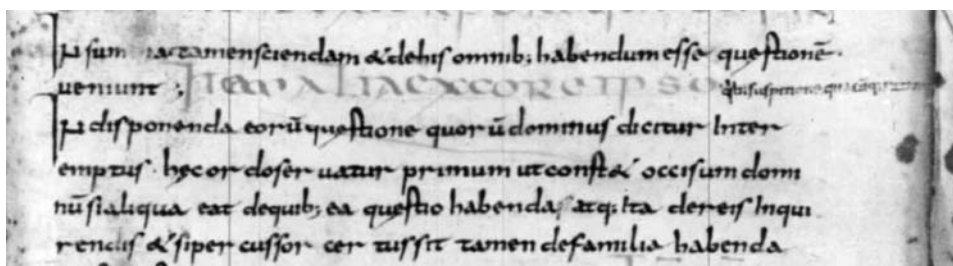 In summa tamen sciendam & de his omnib; habendum esse questionē ·
ueniunt ; ITEM ALIA EX CORE IPSO
In disponenda eorū questione quorū dominus dicitur Inter
emptus · hęc ordo seruatur primum ut const& occisum domi
nū si aliqua eat de quib; ea questio habenda; atq; Ita de reis Inqui
rendis & si percussor certus sit tamen de familia habenda